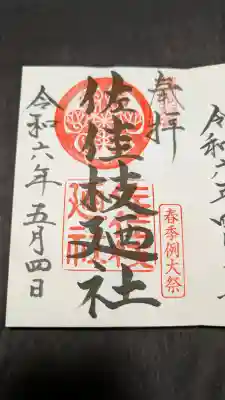 奉拝
佐佳枝廼社
春季例大祭
佐佳枝
廼社
令和六年五月四日
令和六年